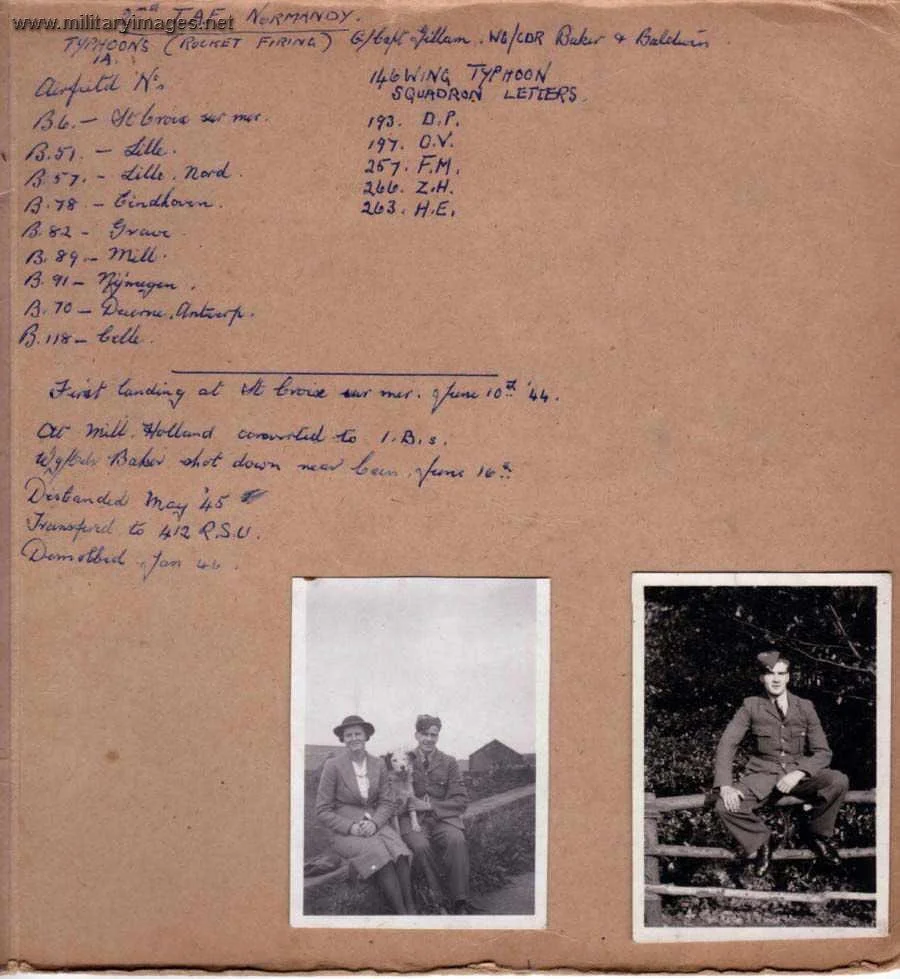 www.militaryimages.net
2nd T.A.F. NORMANDY.
TYPHOONS (ROCKET FIRING) G/Capt Gillam. WG/CDR Baker & Baldwin.
1A.
Airfield Nos
B6. – St Croix sur mer.
B.51. – Lille.
B.57. – Lille. Nord.
B.78 – Eindhoven.
B.82 – Grave.
B.89. – Mill.
B.91 – Nijmegen.
B.70 – Deurne, Antwerp.
B.118 – Celle.
146 WING TYPHOON
SQUADRON LETTERS.
193. D.P.
197. O.V.
257. F.M.
266. Z.H.
263. H.E.
First landing at St Croix sur mer. June 10th '44.
At Mill. Holland converted to 1.B.s.
Wg/Cdr Baker shot down near Caen. June 16th
Disbanded May '45
Transferd to 412 R.S.U.
Demobbed Jan 46.